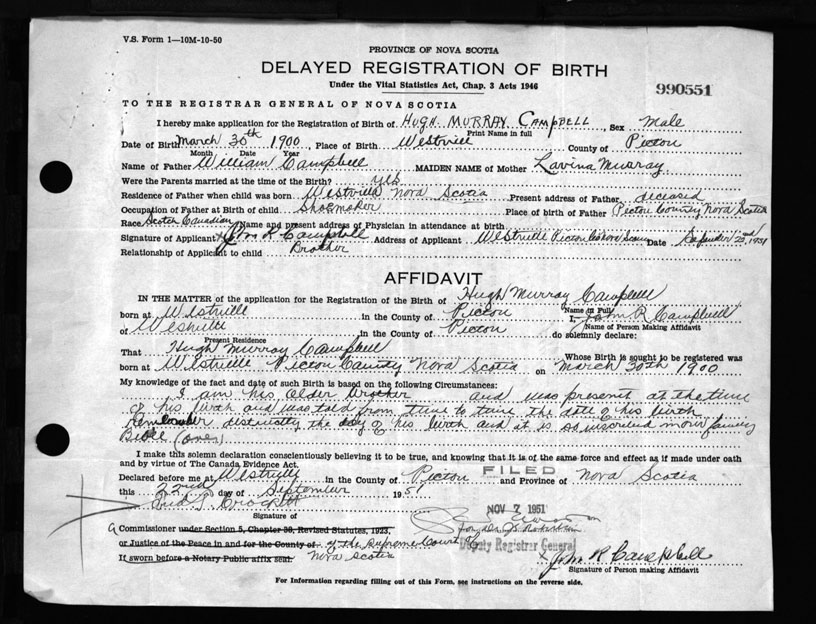 V.S. Form 1—10M-10-50
PROVINCE OF NOVA SCOTIA
DELAYED REGISTRATION OF BIRTH
Under the Vital Statistics Act, Chap. 3 Acts 1946
990551
TO THE REGISTRAR GENERAL OF NOVA SCOTIA
I hereby make application for the Registration of Birth of HUGH MURRAY CAMPBELL, Sex Male
Print Name in full
Date of Birth March 30th 1900, Place of Birth Westville County of Pictou
Month Date Year
Name of Father William Campbell MAIDEN NAME of Mother Lavina Murray
Were the Parents married at the time of the Birth? yes
Residence of Father when child was born Westville Nova Scotia Present address of Father deceased
Occupation of Father at Birth of child Shoemaker Place of birth of Father Pictou County Nova Scotia
Race Scotch Canadian Name and present address of Physician in attendance at birth
Signature of Applicant John R Campbell Address of Applicant Westville Pictou Co Nova Scotia Date September 22nd, 1951
Relationship of Applicant to child Brother
AFFIDAVIT
IN THE MATTER of the application for the Registration of the Birth of Hugh Murray Campbell
Name in Full
born at Westville in the County of Pictou I, John R Campbell
Name of Person Making Affidavit
of Westville in the County of Pictou do solemnly declare:
Present Residence
That Hugh Murray Campbell Whose Birth is sought to be registered was
born at Westville Pictou County Nova Scotia on March 30th 1900
My knowledge of the fact and date of such Birth is based on the following Circumstances:
I am his older brother and was present at the time
of his birth and was told from time to time the date of his birth
remember distinctly the day of his birth and it is as inscribed in our family
Bible (over)
I make this solemn declaration conscientiously believing it to be true, and knowing that it is of the same force and effect as if made under oath
and by virtue of The Canada Evidence Act.
Declared before me at Westville in the County of Pictou and Province of Nova Scotia
FILED
this 22nd day of September 1951
NOV 7 1951
Fred T. Crockett
Signature of
A Commissioner under Section 5, Chapter 36, Revised Statutes, 1923,
or Justice of the Peace in and for the County of of the Supreme Court of
Deputy Registrar General
If sworn before a Notary Public affix seal. Nova Scotia
John R Campbell
Signature of Person making Affidavit
For Information regarding filling out of this Form, see instructions on the reverse side.